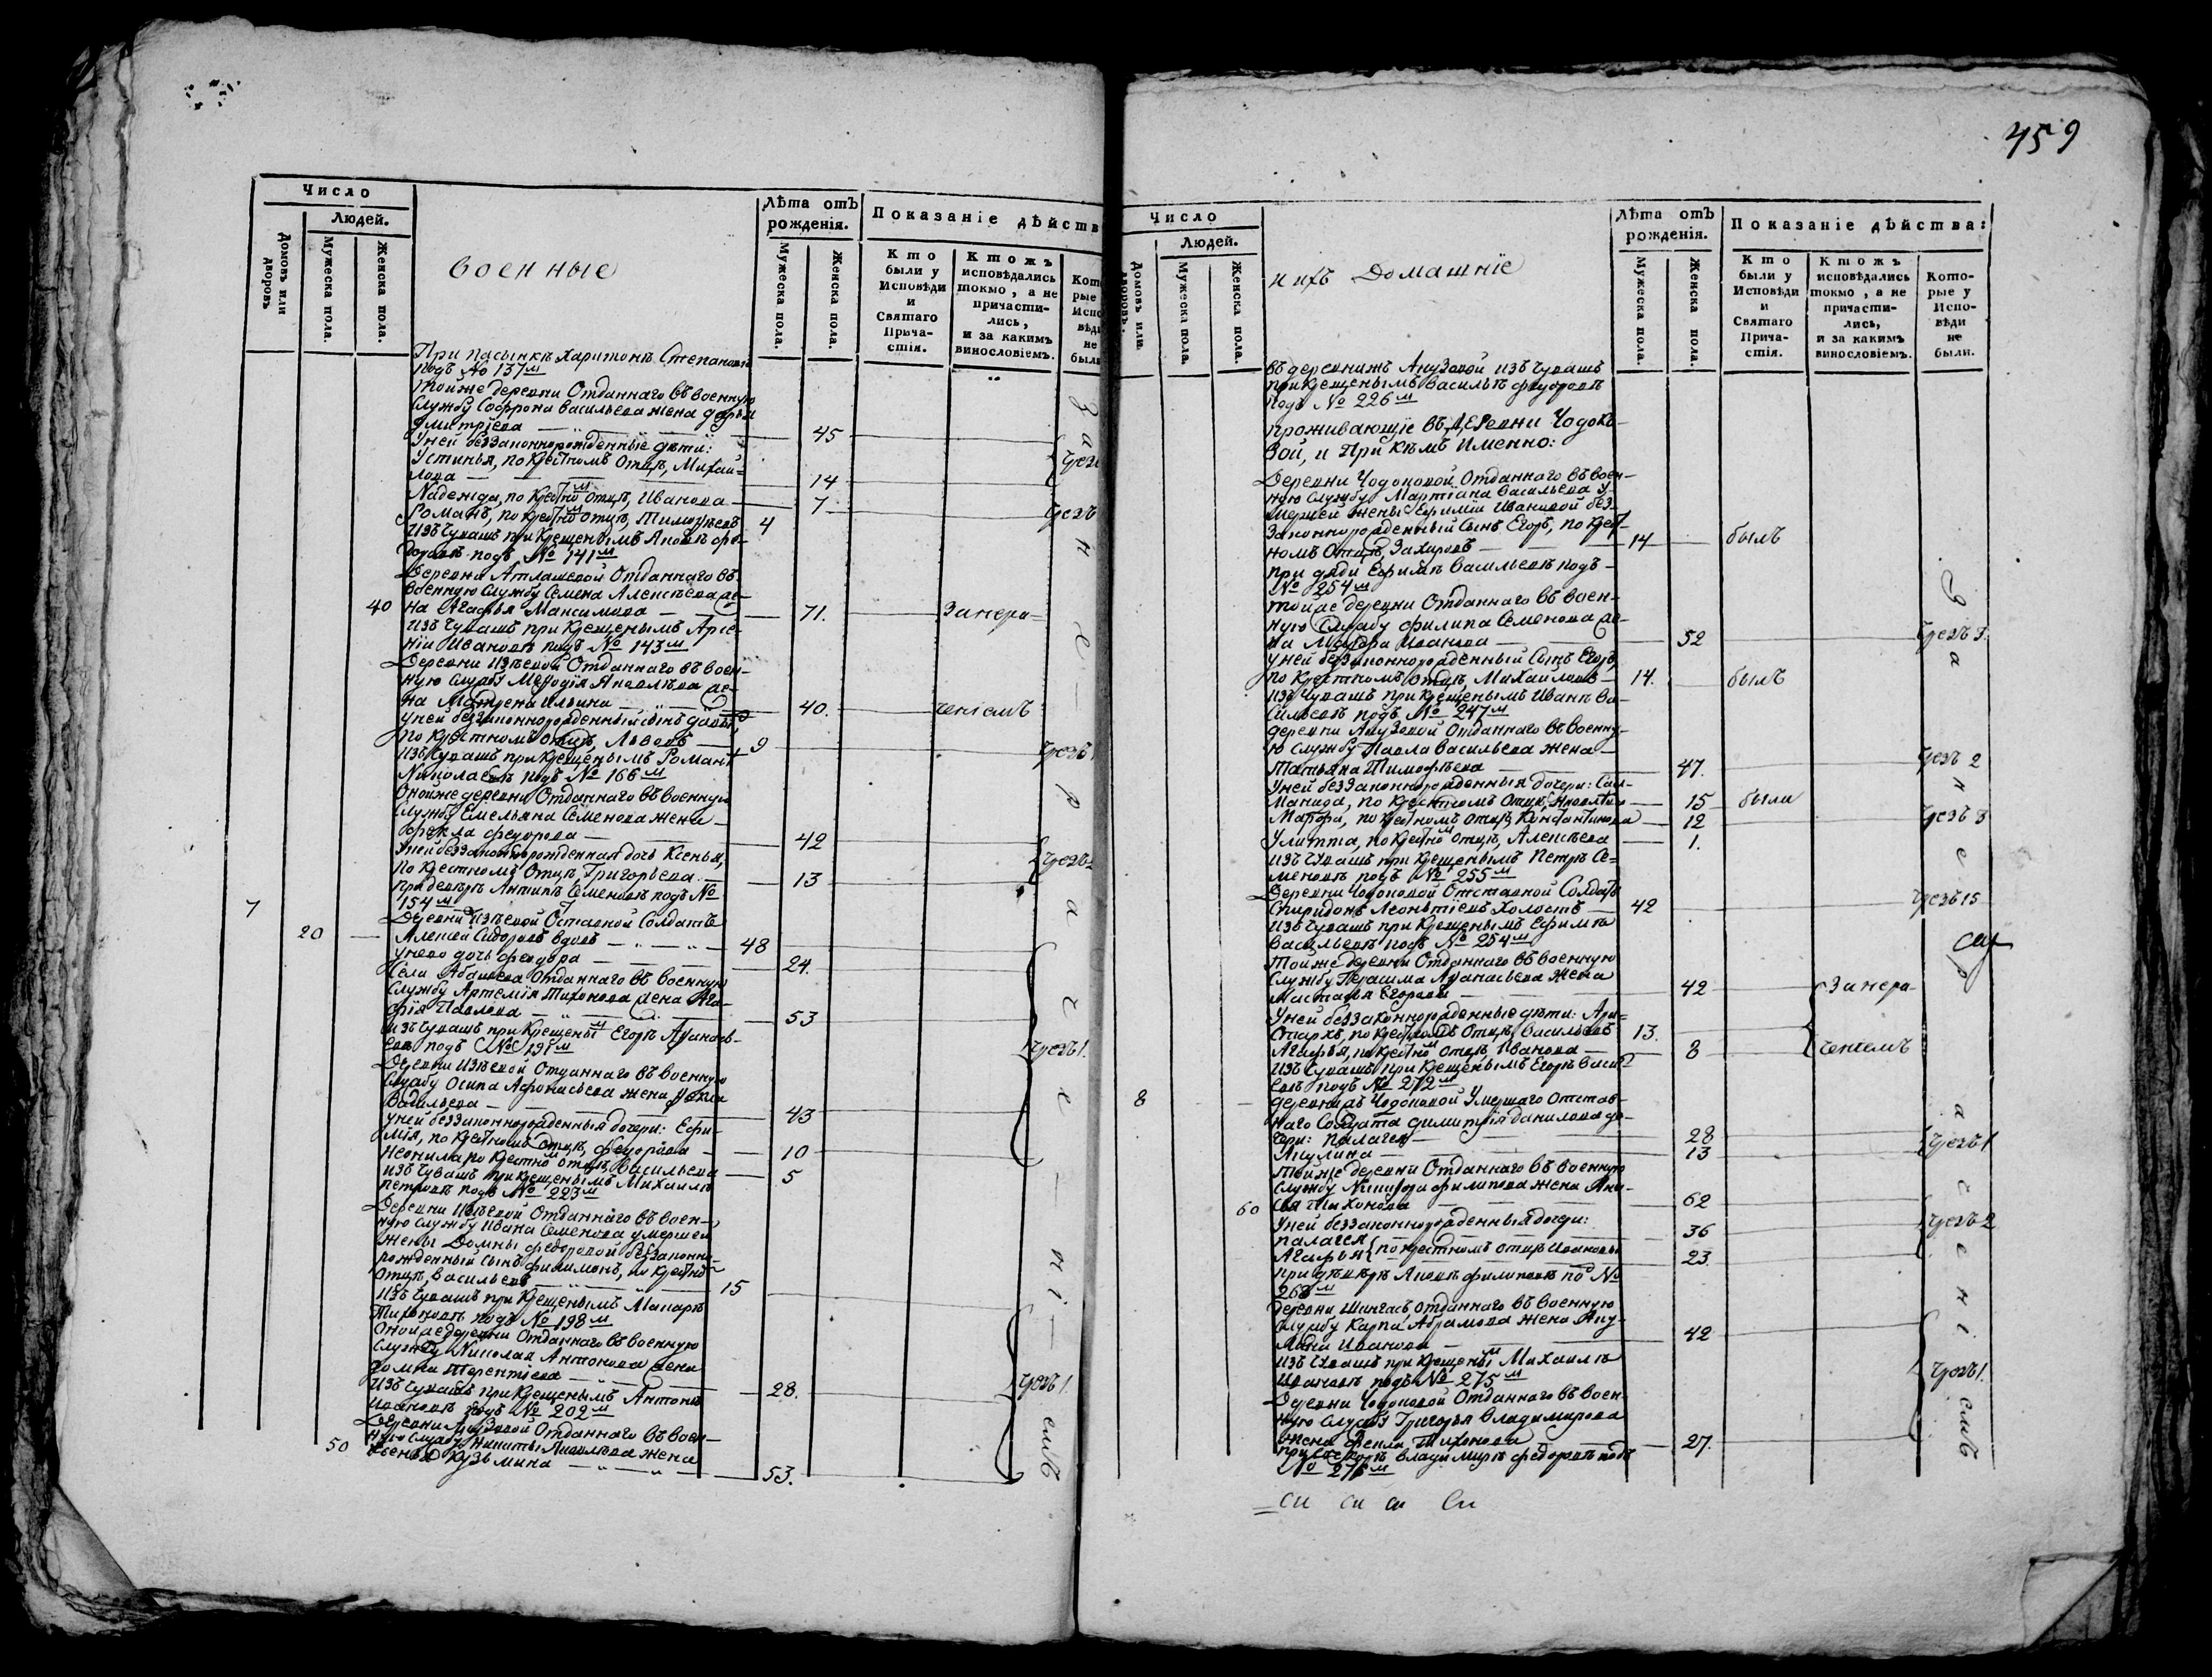 Число
Людей.
Домовъ или дворовъ
Мужеска пола.
Женска пола.
военные
Лѣта отъ рожденія.
Мужеска пола.
Женска пола.
Показаніе дѣйств
Кто были у Исповѣди и Святаго Прича-стія.
Кто жъ исповѣдались токмо, а не причасти-лись, и за какимъ винословіемъ.
При пасынкѣ Харитонѣ Степановѣ
подъ № 137м
Тойже деревни Отданнаго въ военную
службу Софрона Васильева жена Дарья
Дмитріева 45
Уней беззаконнорожденные дѣти:
Устинья, по крестномъ Отцѣ, Михай=
лова 14
Надежда, по крестномъ отцѣ, Иванова 7
Романъ, по крестномъ отцѣ, Тимофѣевъ 4
Изъ Чувашъ при Крещенымъ Яковѣ Фео-
доровѣ подъ № 141м
Деревни Атлашевой Отданнаго въ
военную Службу Семена Алексѣева же-
40 на Агафья Максимова 71. Занера-
изъ Чувашъ при Крещенымъ Арсе-
ніи Ивановѣ подъ № 143м
Деревни Изѣевой Отданнаго въ воен-
ную службу Мефодія Яковлева же-
на Матрена Ильина 40. ченіемъ
уней беззаконнорожденный сынъ
по крестномъ отцѣ, Львовъ 9
изъ Чувашъ при Крещенымъ Романѣ
Николаевѣ подъ № 166м
Онойже деревни Отданнаго въ военную
Службу Емельяна Семенова жена
Фекла Федорова 42
Уней беззаконнорожденная дочь Ксенья,
по крестномъ Отцѣ, Григорьева 13
при деверѣ Антипѣ Семеновѣ подъ №
154м
7 Деревни Изѣевой Отставной Солдатъ
20 Алексѣй Сидоровъ вдовъ 48
унево дочь Феодора 24.
Села Абашева Отданнаго въ военную
Службу Артемія Тихонова жена Ага-
фія Павлова 53
изъ Чувашъ при Крещеным Егорѣ Афанась-
евѣ подъ № 191м
Чрезъ 1.
Деревни Изѣевой Отданнаго въ военную
Службу Осипа Афонасьева жена
Васильева 43
уней беззаконнорожденныя дочери: Ефи-
мія, по крестномъ Отцѣ, Федорова 10
Неонила по крестномъ отцѣ, Васильева 5
изъ Чувашъ при Крещенымъ Михаилѣ
Петровѣ подъ № 223м
Деревни Изѣевой Отданнаго въ воен-
ную службу Ивана Семенова умершей
жены Домны Федоровой беззаконно-
рожденный сынъ Филимонъ, по крестномъ
Отцѣ, Васильевъ 15
Изъ Чувашъ при Крещенымъ Макарѣ
Тихоновѣ подъ № 198м
Онойже деревни Отданнаго въ военную
Службу Николая Антонова жена
Домна Терентіева 28. Чрезъ 1.
Изъ Чувашъ при Крещенымъ Антонѣ
Ивановѣ подъ № 202м
Деревни Анузовой Отданнаго въ воен-
ную Службу Никиты Яковлева жена
50 Ксенья Кузьмина 53.
За не ра че ні емъ
459
Число
Людей.
Домовъ или дворовъ.
Мужеска пола.
Женска пола.
и ихъ Домашніе
Лѣта отъ рожденія.
Мужеска пола.
Женска пола.
Показаніе дѣйства:
Кто были у Исповѣди и Святаго Прича-стія.
Кто жъ исповѣдались токмо, а не причасти-лись, и за какимъ винословіемъ.
Кото-рые у Испо-вѣди не были.
въ деревнижъ Анузовой изъ Чувашъ
при Крещенымъ Васильѣ Федоровѣ
подъ № 226м
проживающіе въ Деревни Чодок-
вой, и При кѣмъ Именно:
Деревни Чодоковой Отданнаго въ воен-
ную Службу Мартіана Васильева у-
мершей жены Ефиміи Ивановой без-
законнорожденный Сынъ Егоръ, по крест-
номъ Отцѣ, Захаровъ 14 былъ
при дяди Ефимѣ Васильевѣ подъ
№ 254м
тойже деревни Отданнаго въ воен-
ную Службу Филипа Семенова же-
на Марфа Иванова 52
уней беззаконнорожденный Сынъ Егоръ
по крестномъ отцѣ Михайловъ 14. былъ
изъ Чувашъ при Крещенымъ Иванѣ Ва-
сильевѣ подъ № 247м
деревни Анузовой Отданнаго въ военну-
ю службу Павла Васильева жена
Татьяна Тимофѣева 47. Чрезъ 2
Уней беззаконнорожденныя дочери: Сал-
манида, по крестномъ Отцѣ, Яковлева 15 были
Марфа, по крестномъ отцѣ, Константинова 12 Чрезъ 3
Улитта, по крестном отцѣ, Алексѣева 1.
изъ Чувашъ при Крещенымъ Петрѣ Се-
меновѣ подъ № 255м
Деревни Чодоковой Отставной Солдатъ
Спиридонъ Леонтіевъ Холостъ 42 Чрезъ 15
изъ Чувашъ при Крещенымъ Ефимѣ
Васильевѣ подъ № 254м
Тойже деревни Отданнаго въ военную
Службу Герасима Афанасьева жена
Настасья Егорова 42 Занера-
Уней беззаконнорожденные дѣти: Ари-
стархъ, по крестномъ Отцѣ Васильевъ 13.
Агафья, по крестномъ отцѣ, Иванова 8 ченіемъ
изъ Чувашъ при Крещенымъ Егорѣ
подъ № 272м
8 деревнижъ Чодоковой Умершаго Отстав-
наго Солдата Димитрія Данилова до-
чери: Палагея 28
Акулина 13 Чрезъ 1
Тойже деревни Отданнаго въ военную
Службу Никифора Филипова жена Ани-
60 сья Тихонова 62
Уней беззаконнорожденныя дочери: Чрезъ 2
Палагея 36
Агафья по крестномъ отцѣ Ивановы 23.
при деверѣ Яковѣ Филиповѣ по №
268м
Деревни Шингасъ, отданнаго въ военную
Службу Карпа Абрамова жена Аку-
лина Иванова 42
изъ Чувашъ при Крещеным Михаилѣ
Ивановѣ подъ № 275м
Чрезъ 1.
Деревни Чодоковой Отданнаго въ воен-
ную Службу Григорья Владимирова
жена Фекла Тихонова 27.
при свекорѣ Владимирѣ Федоровѣ подъ
№ 276м
За не ра че ні емъ
си си си Си